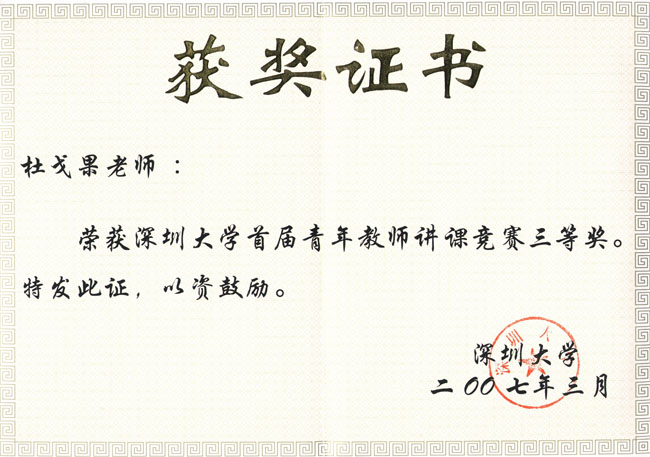 获奖证书
杜戈果老师：
荣获深圳大学首届青年教师讲课竞赛三等奖。
特发此证，以资鼓励。
深圳大学
深圳大学
二〇〇七年三月